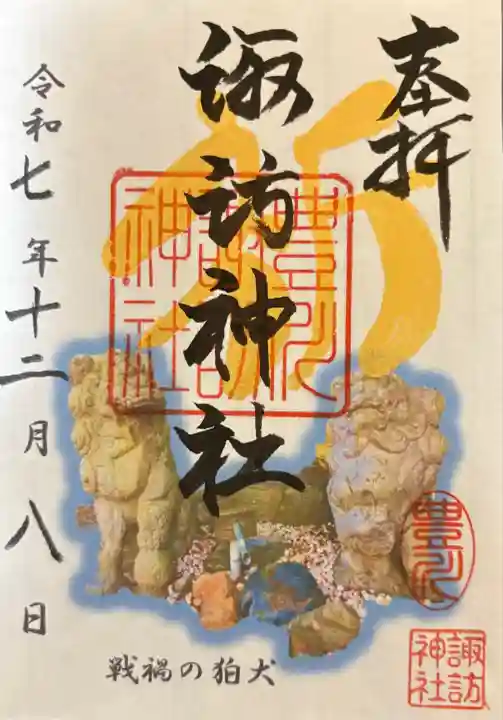 奉拝
諏訪神社
令和七年十二月八日
豊川
諏訪
神社
豊川
諏訪
神社
戦禍の狛犬